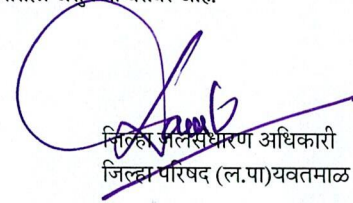 आहे.
जिल्हा जलसंधारण अधिकारी
जिल्हा परिषद (ल.पा)यवतमाळ